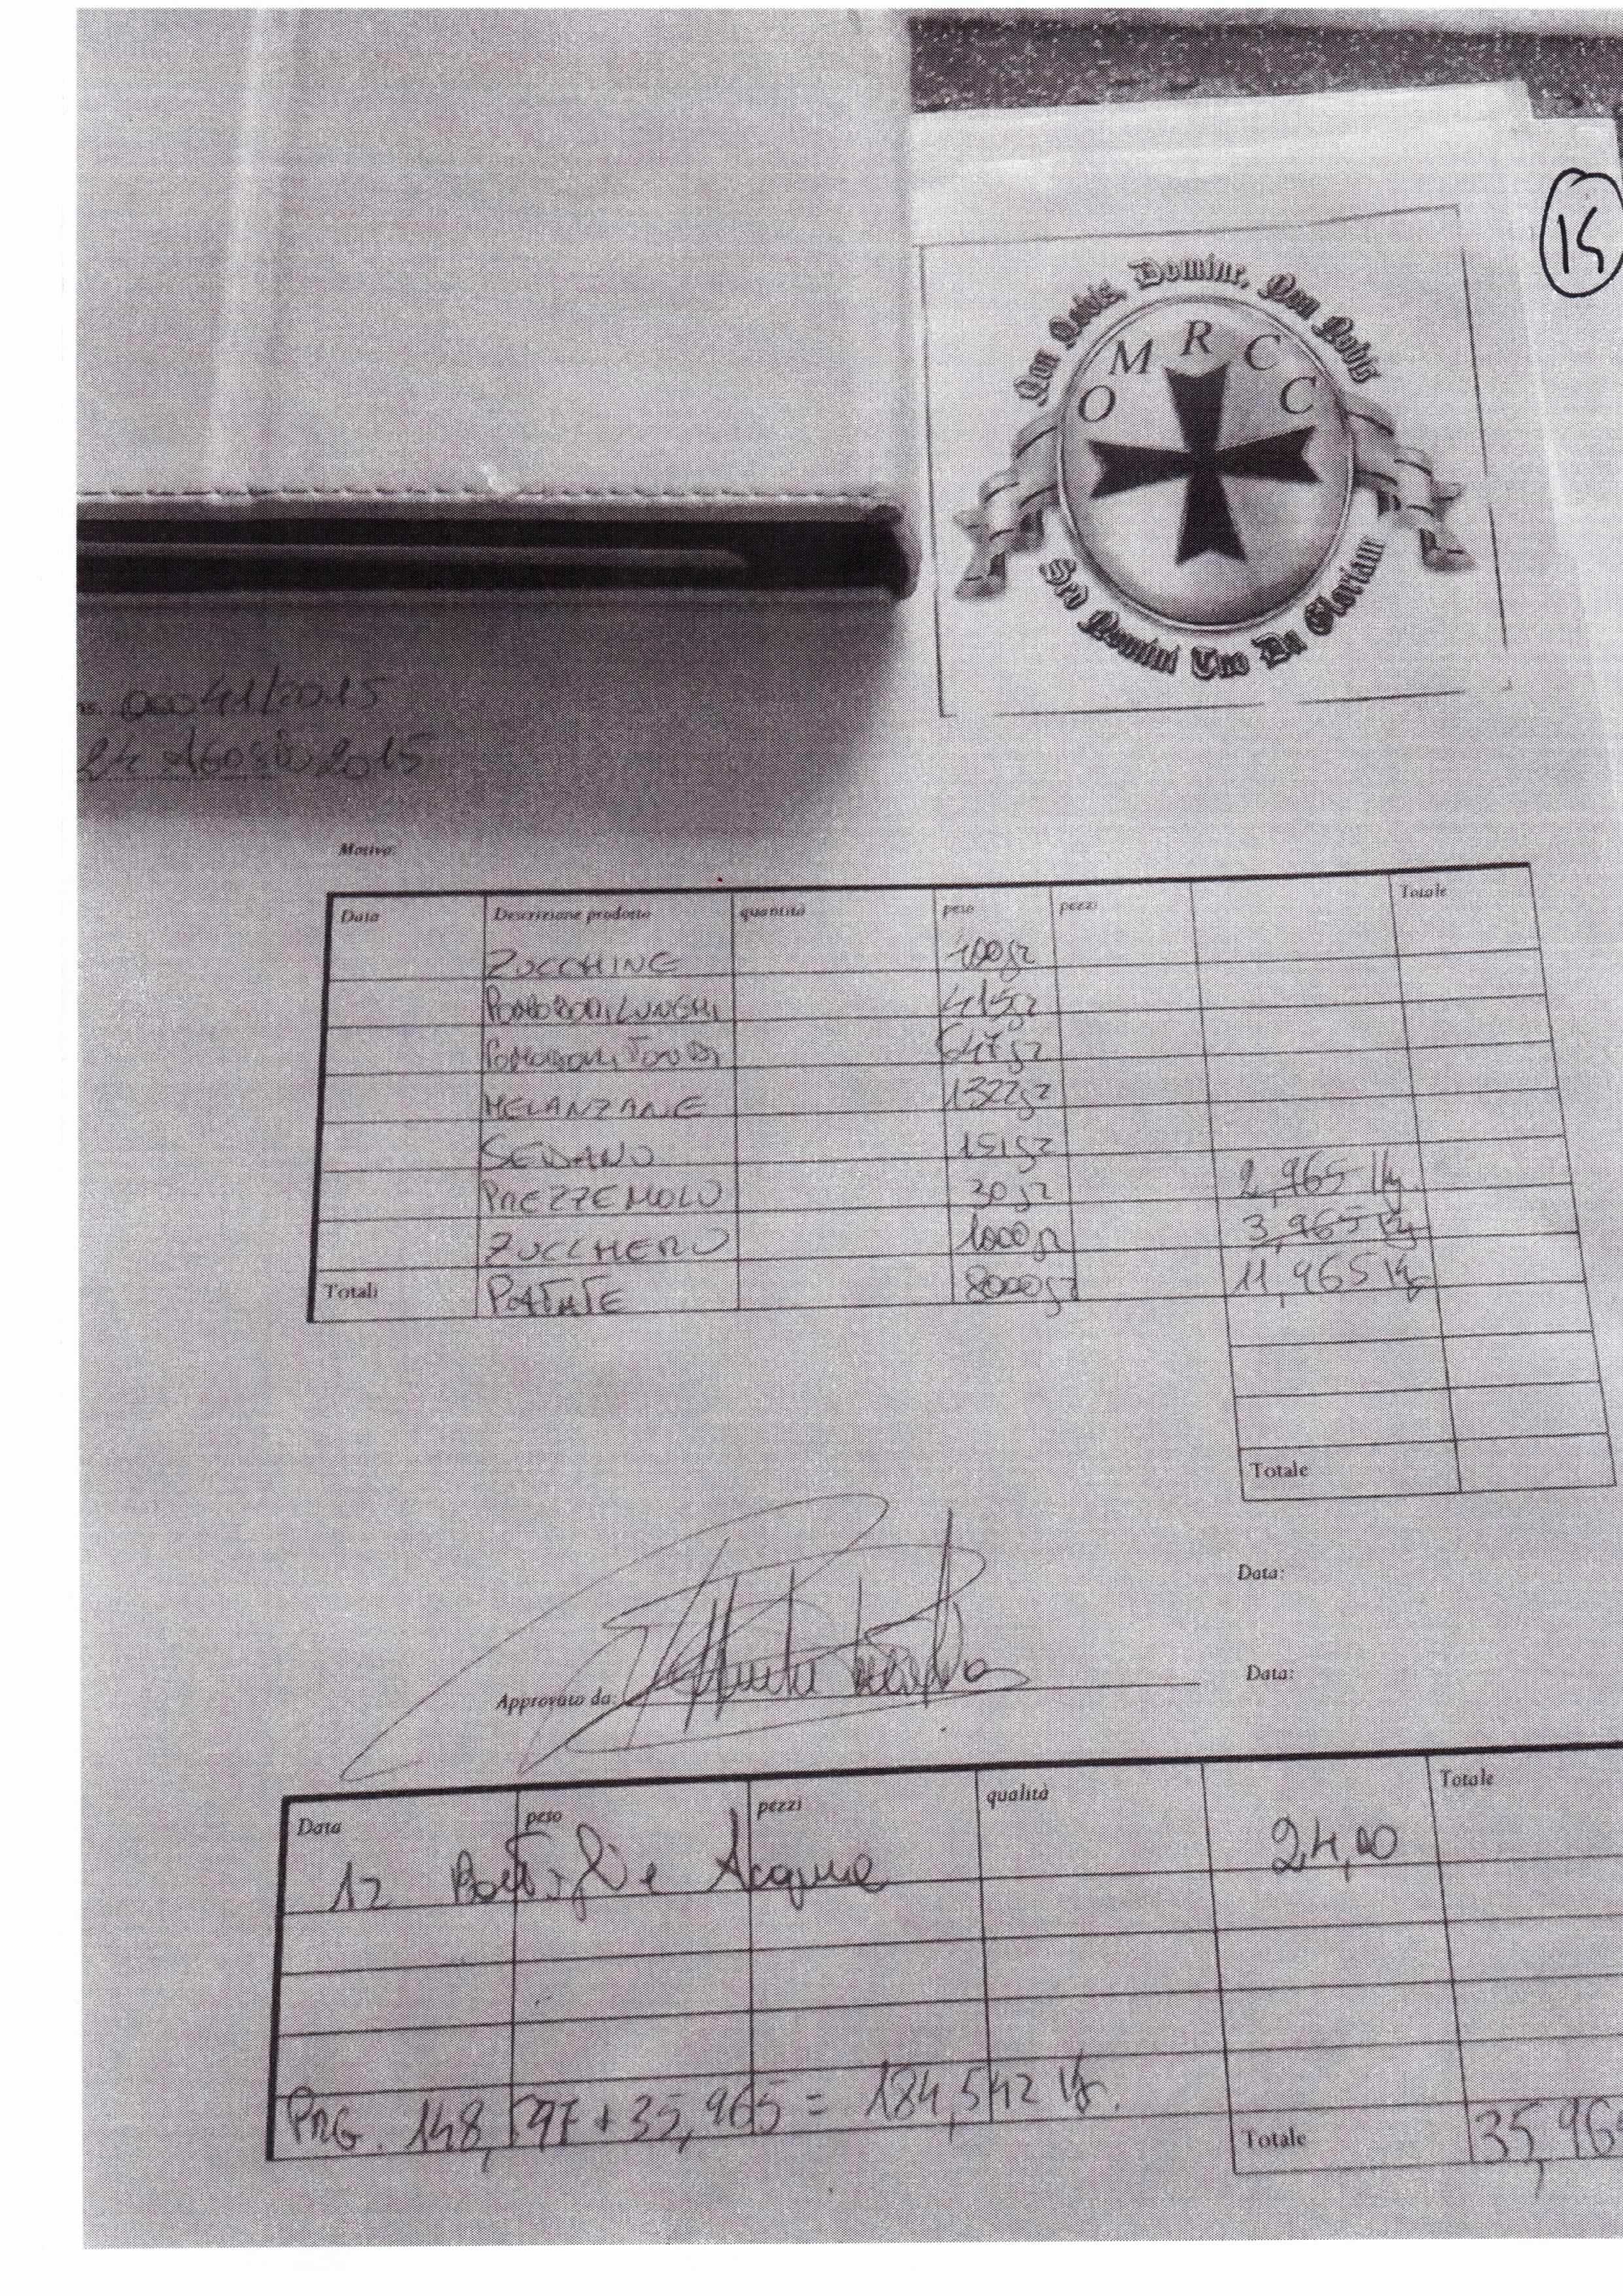 15
Non Nobis, Domine, Non Nobis
O M R C C
Sed Nomini Tuo Da Gloriam
00041/2015
24 Agosto 2015
Motivo:
Data Descrizione prodotto quantità peso pezzi Totale
ZUCCHINE 400gr
POMODORI LUNGHI 415gr
POMODORI TONDI 647gr
MELANZANE 1322gr
SEDANO 151gr
PREZZEMOLO 30gr 2,965 Kg
ZUCCHERO 1000gr 3,965 Kg
Totali PATATE 8000gr 11,965 Kg
Totale
Data:
Approvato da: Data:
Data peso pezzi qualità Totale
12 Bottiglie Acqua 24,00
PRG. 148, + 35,965 = 184,542 Kg.
Totale 35,96